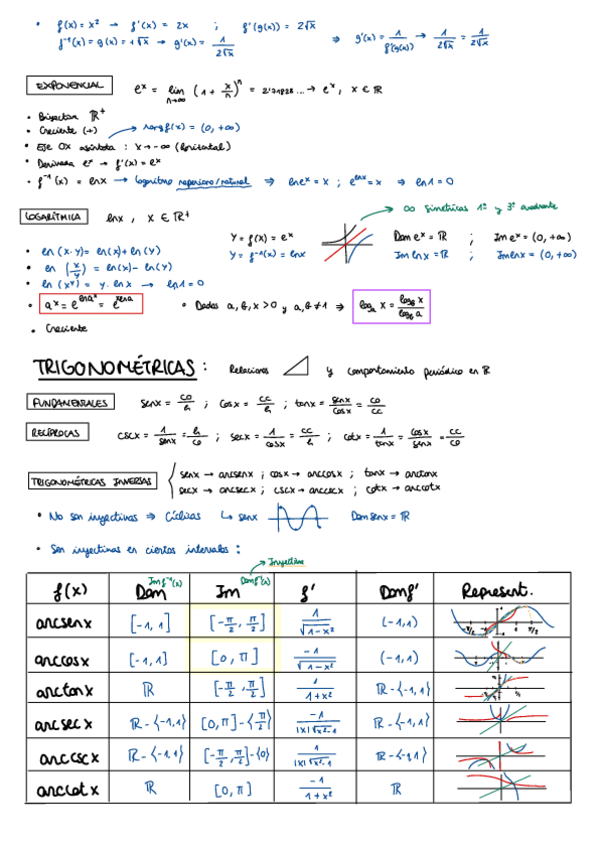 • f(x) = x² → f'(x) = 2x ; f'(g(x)) = 2√x
f⁻¹(x) = g(x) = +√x → g'(x) = 1/(2√x) ⇒ g'(x) = 1/f'(g(x)) → 1/(2√x) = 1/(2√x)
EXPONENCIAL eˣ = lim n→∞ (1 + x/n)ⁿ = 2'71828... → eˣ, x ∈ ℝ
• Biyectiva ℝ⁺
• Creciente (+) → rang f(x) = (0, +∞)
• Eje OX asíntota : x → -∞ (horizontal)
• Derivada eˣ → f'(x) = eˣ
• f⁻¹(x) = ln x → logaritmo neperiano/natural ⇒ ln eˣ = x ; e^(ln x) = x ⇒ ln 1 = 0
LOGARÍTMICA ln x, x ∈ ℝ⁺
∞ Simétricas 1º y 3º cuadrante
Y = f(x) = eˣ Dom eˣ = ℝ ; Im eˣ = (0, +∞)
Y = f⁻¹(x) = ln x Im ln x = ℝ ; Im ln x = (0, +∞)
• ln (x·y) = ln(x) + ln(y)
• ln (x/y) = ln(x) - ln(y)
• ln (xʸ) = y · ln x → ln 1 = 0
• aˣ = e^(ln aˣ) = e^(x ln a) • Dados a, b, x > 0 y a, b ≠ 1 ⇒ logₐ x = log_b x / log_b a
• Creciente
TRIGONOMÉTRICAS : Relaciones y comportamiento periódico en ℝ
FUNDAMENTALES sen x = co/h ; cos x = cc/h ; tan x = sen x/cos x = co/cc
RECÍPROCAS csc x = 1/sen x = h/co ; sec x = 1/cos x = cc/h ; cot x = 1/tan x = cos x/sen x = cc/co
TRIGONOMÉTRICAS INVERSAS
sen x → arcsen x ; cos x → arccos x ; tan x → arctan x
sec x → arcsec x ; csc x → arccsc x ; cot x → arccot x
• No son inyectivas ⇒ Cíclicas ↳ sen x Dom sen x = ℝ
• Son inyectivas en ciertos intervalos :
Inyectiva
Im f⁻¹(x) Dom f(x)
f(x) Dom Im f' Dom f' Represent.
arcsen x [-1, 1] [-π/2, π/2] 1/√(1-x²) (-1, 1)
arccos x [-1, 1] [0, π] -1/√(1-x²) (-1, 1)
arctan x ℝ [-π/2, π/2] 1/(1+x²) ℝ - {-1, 1}
arcsec x ℝ - {-1, 1} [0, π] - {π/2} -1/(|x|√(x²-1)) ℝ - {-1, 1}
arccsc x ℝ - {-1, 1} [-π/2, π/2] - {0} 1/(|x|√(x²-1)) ℝ - {-1, 1}
arccot x ℝ [0, π] -1/(1+x²) ℝ